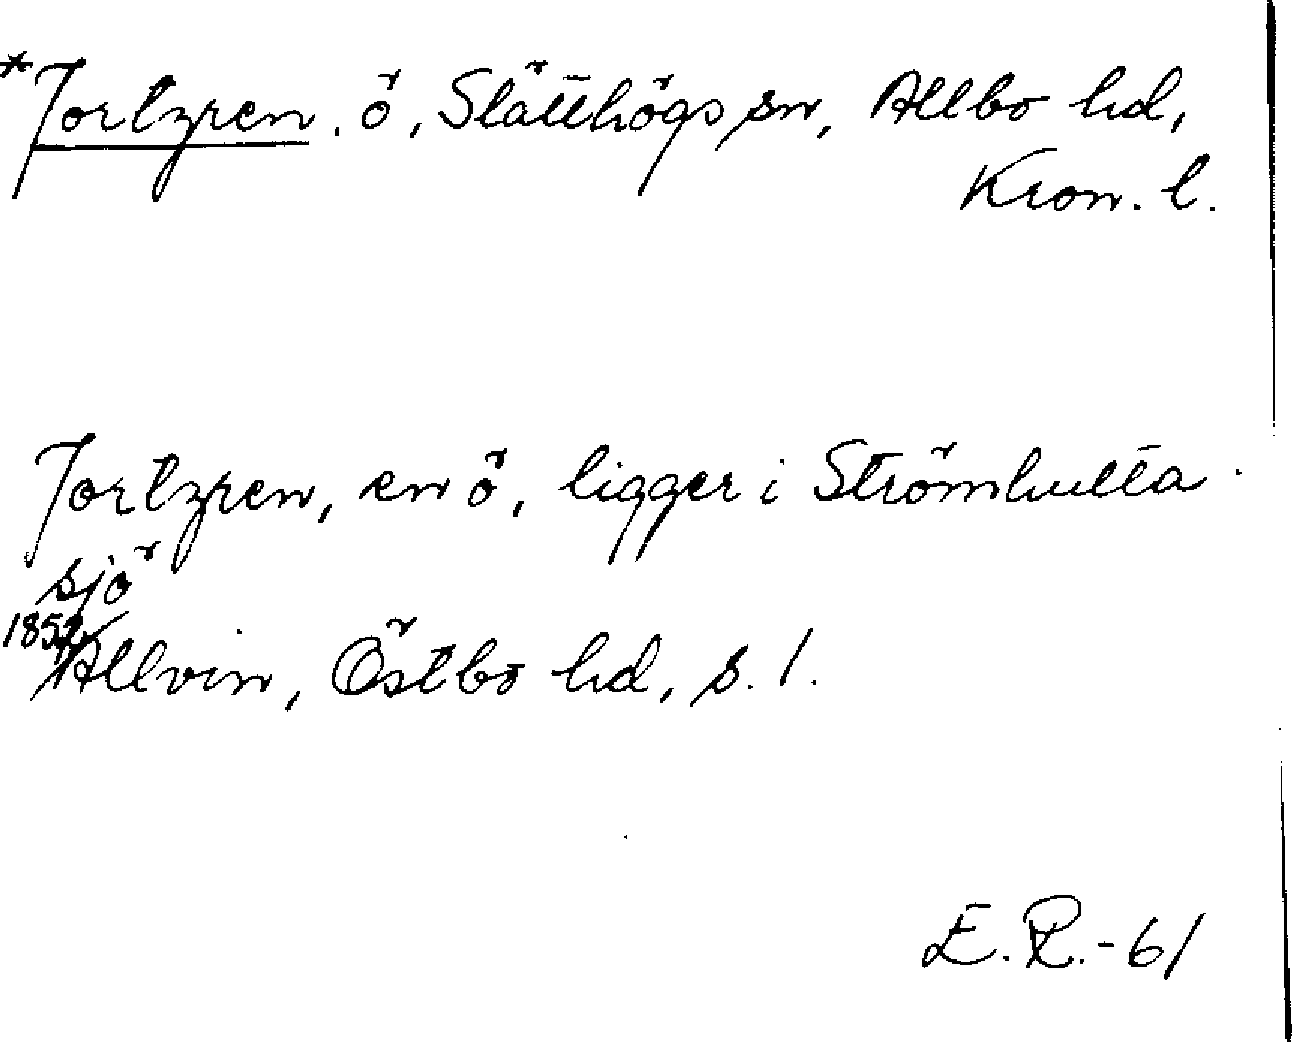 *Jortzren, ö, Slätthögs sn, Allbo hd,
Kron. l.
Jortzren, en ö, ligger i Strömhulta
sjö
1852
Allvin, Östbo hd, s. 1.
E.R.-61